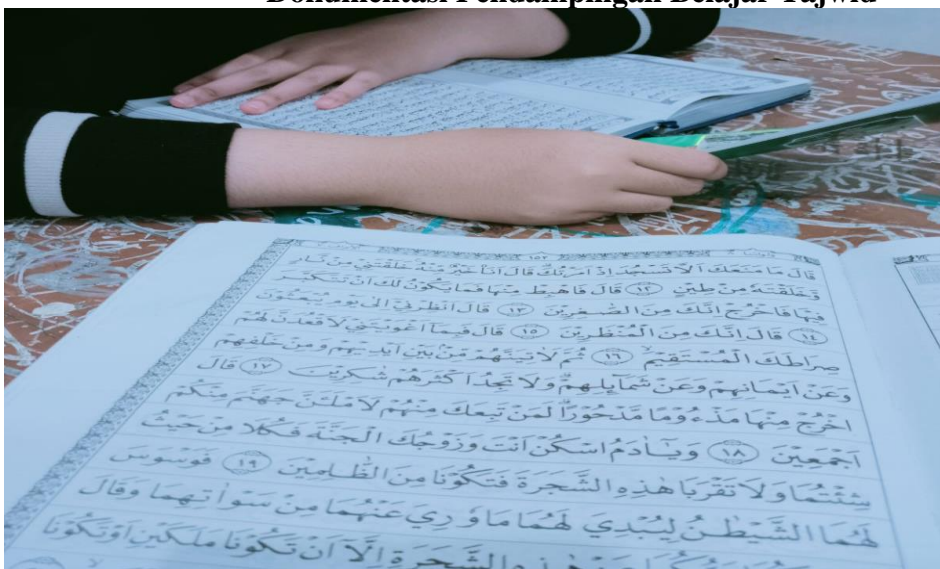 Dokumentasi Pendampingan Belajar Tajwid
١٥٢
قَالَ مَا مَنَعَكَ اَلَّا تَسْجُدَ اِذْ اَمَرْتُكَ قَالَ اَنَا۠ خَيْرٌ مِّنْهُ خَلَقْتَنِيْ مِنْ نَّارٍ
وَّخَلَقْتَهٗ مِنْ طِيْنٍ ١٢ قَالَ فَاهْبِطْ مِنْهَا فَمَا يَكُوْنُ لَكَ اَنْ تَتَكَبَّرَ
فِيْهَا فَاخْرُجْ اِنَّكَ مِنَ الصّٰغِرِيْنَ ١٣ قَالَ اَنْظِرْنِيْٓ اِلٰى يَوْمِ يُبْعَثُوْنَ
١٤ قَالَ اِنَّكَ مِنَ الْمُنْظَرِيْنَ ١٥ قَالَ فَبِمَآ اَغْوَيْتَنِيْ لَاَقْعُدَنَّ لَهُمْ
صِرَاطَكَ الْمُسْتَقِيْمَ ١٦ ثُمَّ لَاٰتِيَنَّهُمْ مِّنْۢ بَيْنِ اَيْدِيْهِمْ وَمِنْ خَلْفِهِمْ
وَعَنْ اَيْمَانِهِمْ وَعَنْ شَمَآئِلِهِمْ وَلَا تَجِدُ اَكْثَرَهُمْ شٰكِرِيْنَ ١٧ قَالَ
اخْرُجْ مِنْهَا مَذْءُوْمًا مَّدْحُوْرًا لَمَنْ تَبِعَكَ مِنْهُمْ لَاَمْلَـَٔنَّ جَهَنَّمَ مِنْكُمْ
اَجْمَعِيْنَ ١٨ وَيٰٓاٰدَمُ اسْكُنْ اَنْتَ وَزَوْجُكَ الْجَنَّةَ فَكُلَا مِنْ حَيْثُ
شِئْتُمَا وَلَا تَقْرَبَا هٰذِهِ الشَّجَرَةَ فَتَكُوْنَا مِنَ الظّٰلِمِيْنَ ١٩ فَوَسْوَسَ
لَهُمَا الشَّيْطٰنُ لِيُبْدِيَ لَهُمَا مَا وٗرِيَ عَنْهُمَا مِنْ سَوْاٰتِهِمَا وَقَالَ
هٰذِهِ الشَّجَرَةِ اِلَّآ اَنْ تَكُوْنَا مَلَكَيْنِ اَوْ تَكُوْنَا